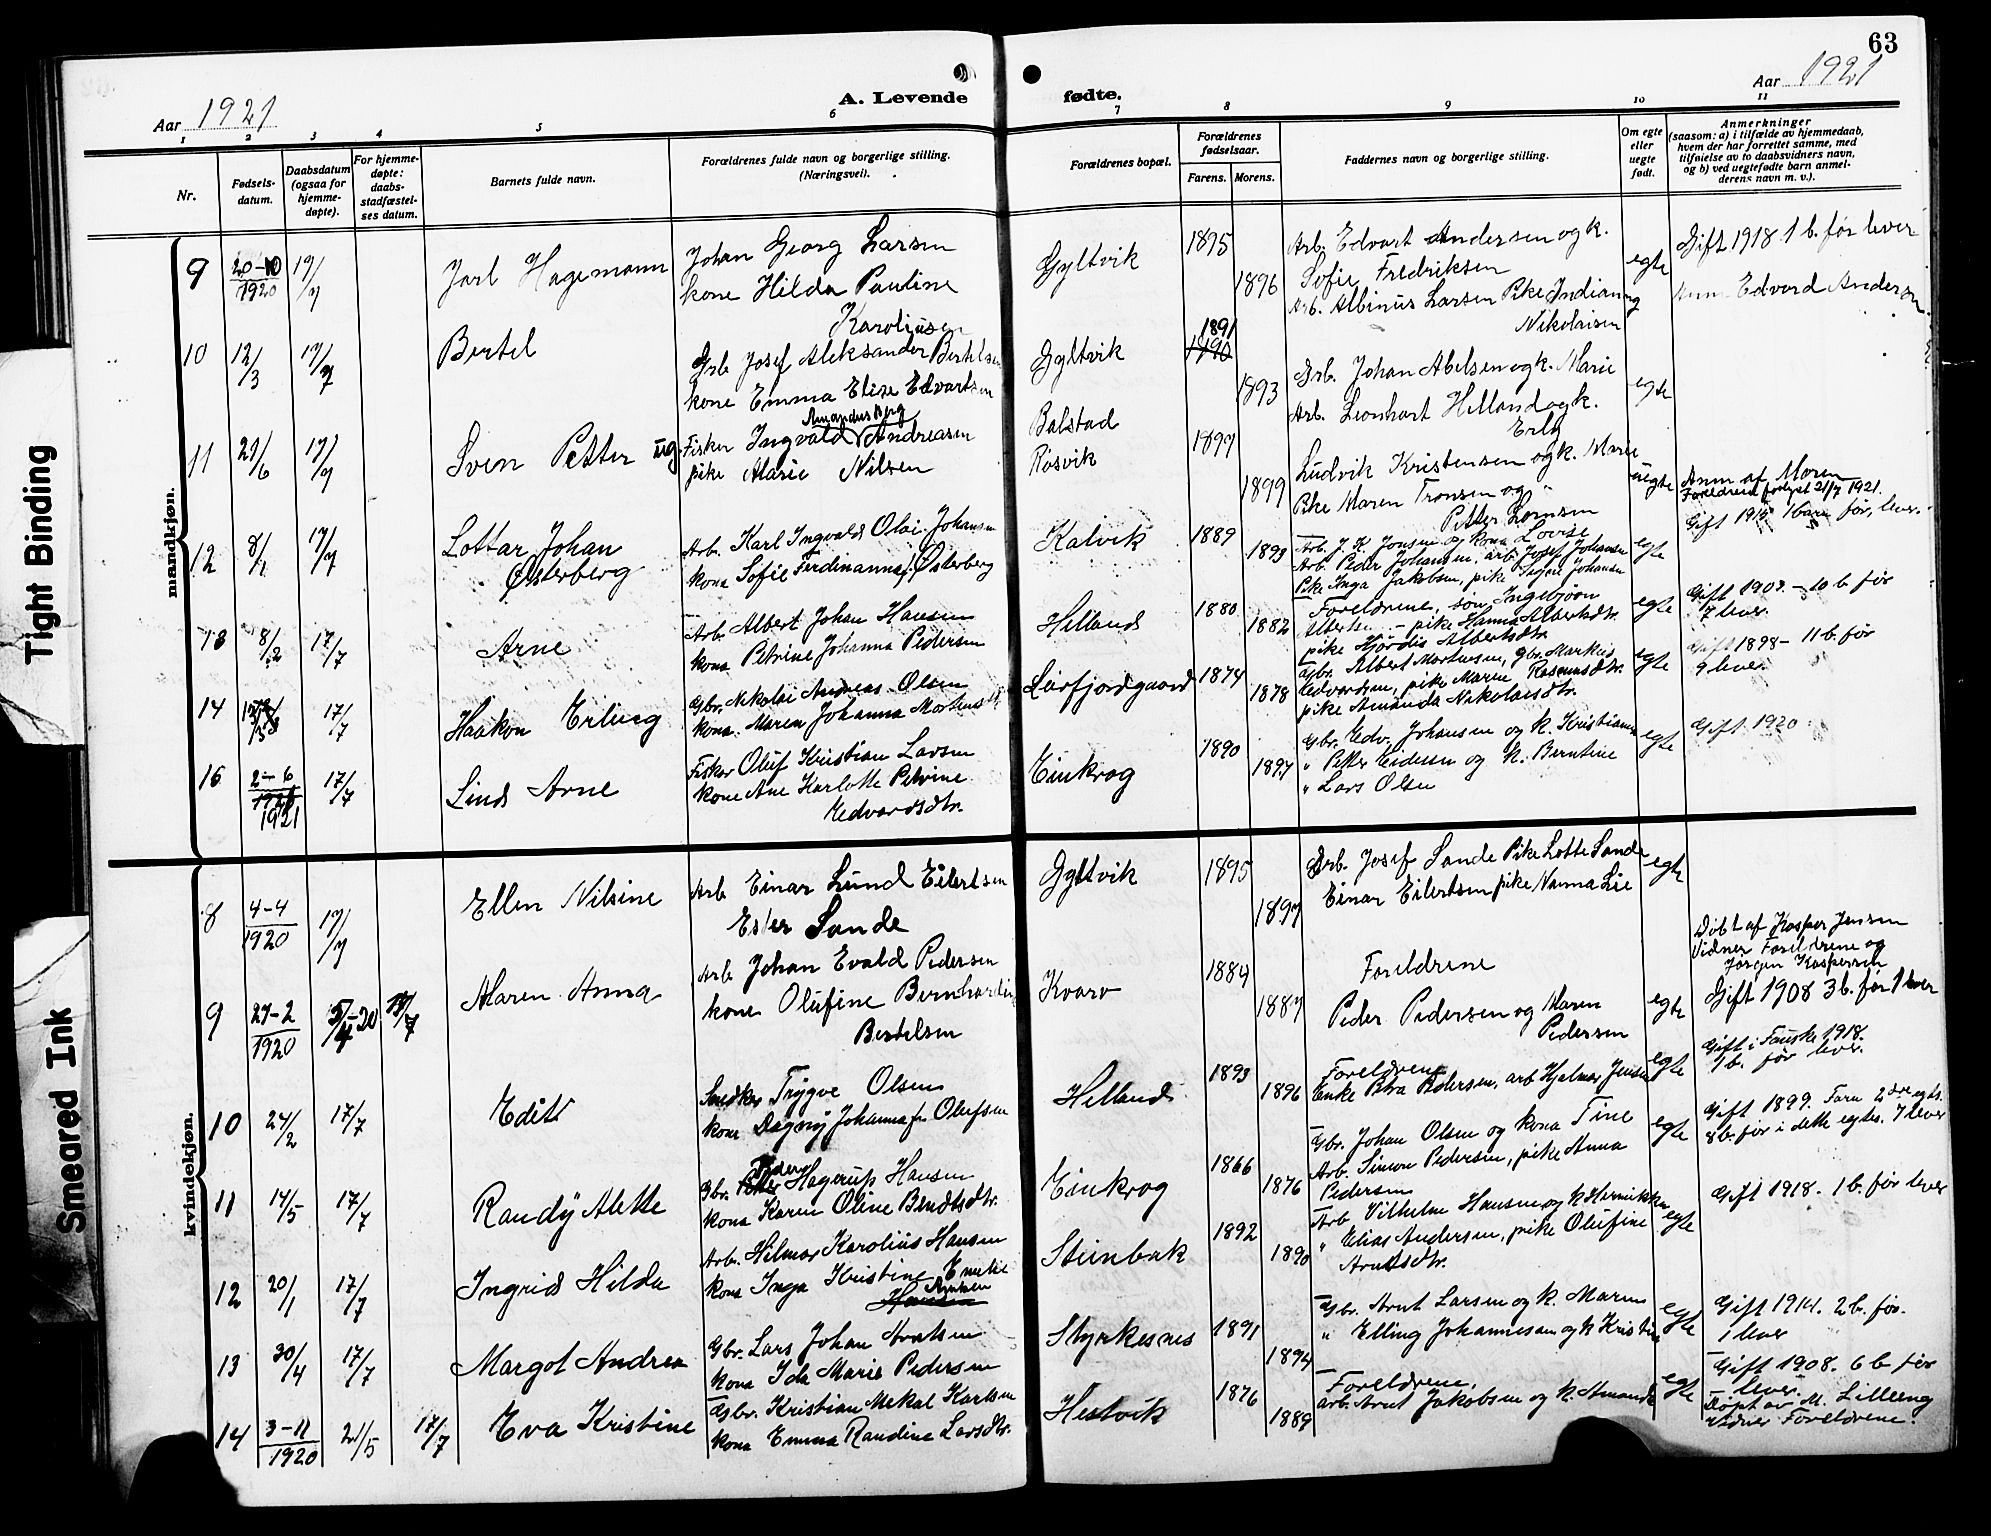 63
Aar 1921
A. Levende
fødte.
Aar 1921
1 2 3 4 5 6 7 8 9 10 11
Nr.
Fødsels-
datum.
Daabsdatum
(ogsaa for
hjemme-
døpte).
For hjemme-
døpte:
daabs-
stadfæstel-
ses datum.
Barnets fulde navn.
Forældrenes fulde navn og borgerlige stilling.
(Næringsvei).
Forældrenes bopæl.
Forældrenes
fødselsaar.
Farens. Morens.
Faddernes navn og borgerlige stilling.
Om egte
eller
uegte
født.
Anmerkninger
(saasom: a) i tilfælde av hjemmedaab,
hvem der har forrettet samme, med
tilføielse av to daabsvidners navn,
og b) ved uegtefødte barn anmel-
derens navn m. v.).
mandkjøn.
9 20-10 1920 17/7 Jarl Hagemann
Johan Georg Larsen
kone Hilda Pauline
Karoliusen
Gyltvik 1895 1896
Arb. Edvart Andersen og k.
Sofie Fredriksen
Arb. Albinus Larsen Pike Indianna
Nikolaisen
egte
Gift 1918 1 b. før lever
Anm Edvard Andersen
10 12/3 17/7 Bertel
Grb Josef Aleksander Bertelsen
kone Emma Elise Edvartsen
Gyltvik 1891 1890 1893
Grb. Johan Abelsen og k. Marie
Arb. Leonhart Helland og k.
Erly
egte
11 21/6 17/7 Sven Petter ug.
Amandus Berg
Fisker Ingvald Andreasen
pike Marie Nilsen
Balstad
Røsvik
1897 1899
Ludvik Kristensen og k. Marie
Pike Maren Tronsen og
Petter Lornsen
uegte
Anm af Moren
Foreldrene 21/7 1921.
12 8/1 17/7 Lottar Johan
Østerberg
Arb. Karl Ingvald Olai Johansen
kona Sofie Ferdinanna f. Østerberg
Kalvik 1889 1893
Arb. J. K. Jensen og kona Lovise
Arb. Peder Johansen, arb. Josef Johansen
Pike Inga Jakobsen, pike Signe Johansen
egte
Gift 1915 1 barn før, lever.
13 8/2 17/7 Arne
Arb. Albert Johan Hansen
kona Petrine Johanna Pedersen
Helland 1880 1882
Foreldrene, søn Ingebjørn
Alberten - pike Hanna Albertsdtr.
pike Hjørdis Albertsdtr.
egte
Gift 1903. - 10 b. før
7 lever.
14 17/7 Haakon Erling
Gbr. Nikolai Andreas Olsen
kona Maren Johanna Mortensdtr
Leirfjordgaard 1874 1878
Gbr. Albert Mortensen, gbr. Markus
Edvardsen, pike Maren Rasmusdtr.
pike Amanda Nikolaisdtr.
egte
Gift 1898 - 11 b. før
9 lever.
15 2-6 1921 17/7 Lind Arne
Fisker Oluf Kristian Larsen
kone Ane Karlotte Petrine
Edvardsdtr.
Einkrog 1890 1897
Gbr. Edv. Johansen og k. Kristianna
" Petter Eidesen og k. Berntine
" Lars Olsen
egte
Gift 1920
kvindekjøn.
8 4-4 1920 17/7 Ellen Nilsine
Arb Einar Lund Eilertsen
Ester Sande
Gyltvik 1895 1897
Grb. Josef Sande Pike Lotte Sande
Einar Eilertsen pike Nanna Lie
egte
9 27-2 1920 5/4-20 17/7 Maren Anna
Arb Johan Evald Pedersen
kone Olufine Bernhardine
Bertelsen
Kvarv 1884 1887
Foreldrene
Peder Pedersen og Maren
Pedersen
egte
Døbt af Kasper Jensen
Vidner Foreldrene og
Jørgen Kaspersen
Gift 1908 3 b. før 1 lever
10 24/2 17/7 Edit
Snedker Trygve Olsen
kona Dagny Johanna f. Olufsen
Helland 1893 1896
Foreldrene
Enke Petra Pedersen, arb Hjalmar Jensen
egte
Gift i Fauske 1918.
1 b. før lever.
11 14/5 17/7 Randy Alette
Gbr. Peder Hagerup Hansen
kona Karen Oline Bendtsdtr.
Einkrog 1866 1876
Gbr. Johan Olsen og kona Tine
Arb. Simon Pedersen, pike Anna
Pedersen
egte
Gift 1899. Faren 2dre egts.
8 b. før i dette egtes. 7 lever
12 20/1 17/7 Ingrid Hilda
Arb. Hilmar Karolius Hansen
kona Inga Kristine Emelie
Hansen
Steinbak 1892 1890
Arb. Vilhelm Hansen og k Henrikke
" Elias Andersen, pike Olufine
Arntsdtr.
egte
Gift 1918. 1 b. før lever
13 30/4 17/7 Margot Andrea
Gbr. Lars Johan Arntsen
kona Ida Marie Pedersen
Styrkesnes 1891 1894
Gbr. Arnt Larsen og k. Maren
" Elling Johannesen og k Kristine
egte
Gift 1914. 2 b. før.
1 lever
14 3-11 1920 21/5 17/7 Eva Kristine
Gbr. Kristian Mekal Karlsen
kona Emma Randine Larsdtr.
Hestvik 1876 1889
Foreldrene,
arb. Arnt Jakobsen og k. Amanda
egte
Gift 1908. 6 b. før
lever.
Døpt av M. Lilleeng
vidner Foreldrene.
Tight Binding
Smeared Ink